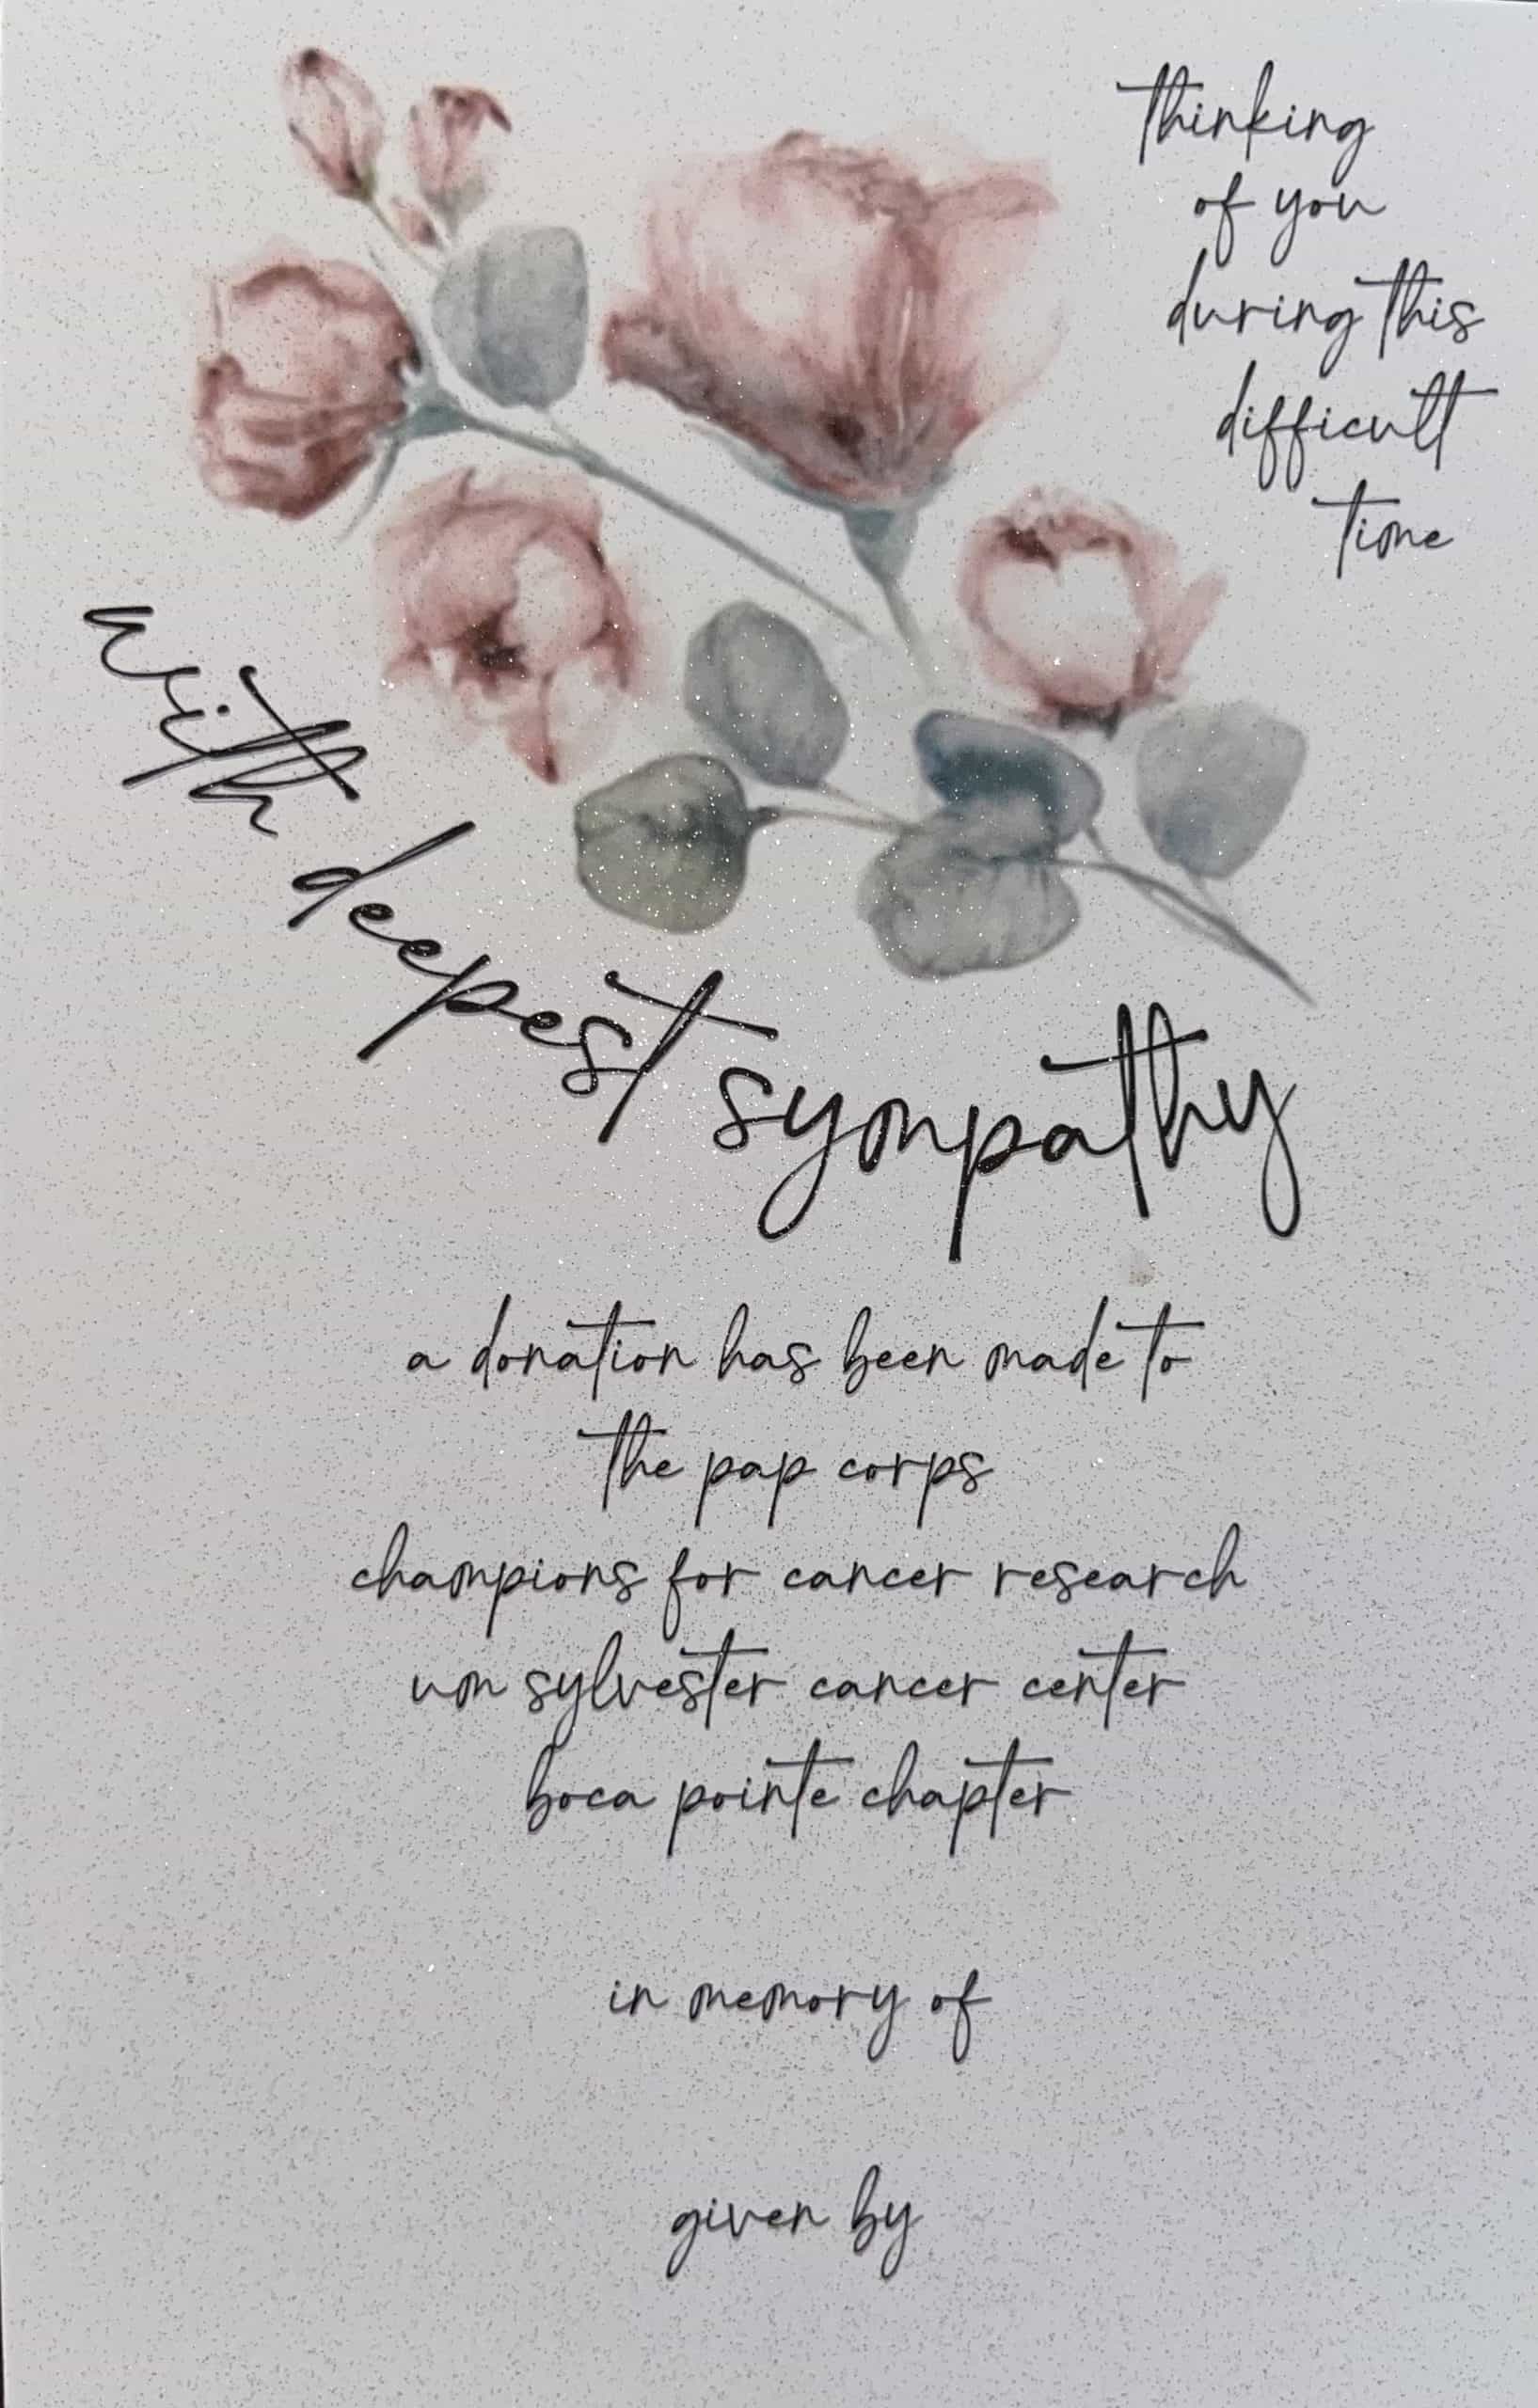 thinking
of you
during this
difficult
time
with deepest sympathy
a donation has been made to
the pap corps
champions for cancer research
um sylvester cancer center
boca pointe chapter
in memory of
given by